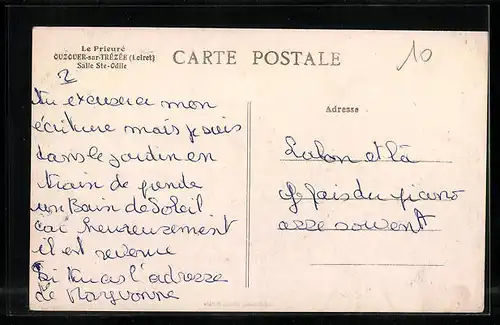 Le Prieuré
OUZOUER-sur-TRÉZÉE (Loiret)
Salle Ste-Odile
CARTE POSTALE
10
2
Adresse
Tu excusera mon
écriture mais je suis
dans le jardin en
train de prende
un Bain de Soleil
car heureusement
il est revenue
Si tu as l'adresse
de Maryvonne
et là
Je fais du piano
assé souvent